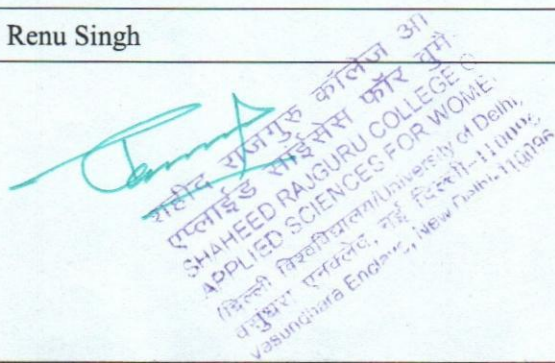 Renu Singh
शहीद राजगुरु कॉलेज ऑ
एप्लाईड साईंसेस फॉर वुमे
SHAHEED RAJGURU COLLEGE O
APPLIED SCIENCES FOR WOME
(दिल्ली विश्वविद्यालय/University of Delhi,
वसुंधरा एनक्लेव, नई दिल्ली-110096
Vasundhara Enclave, New Delhi-110096